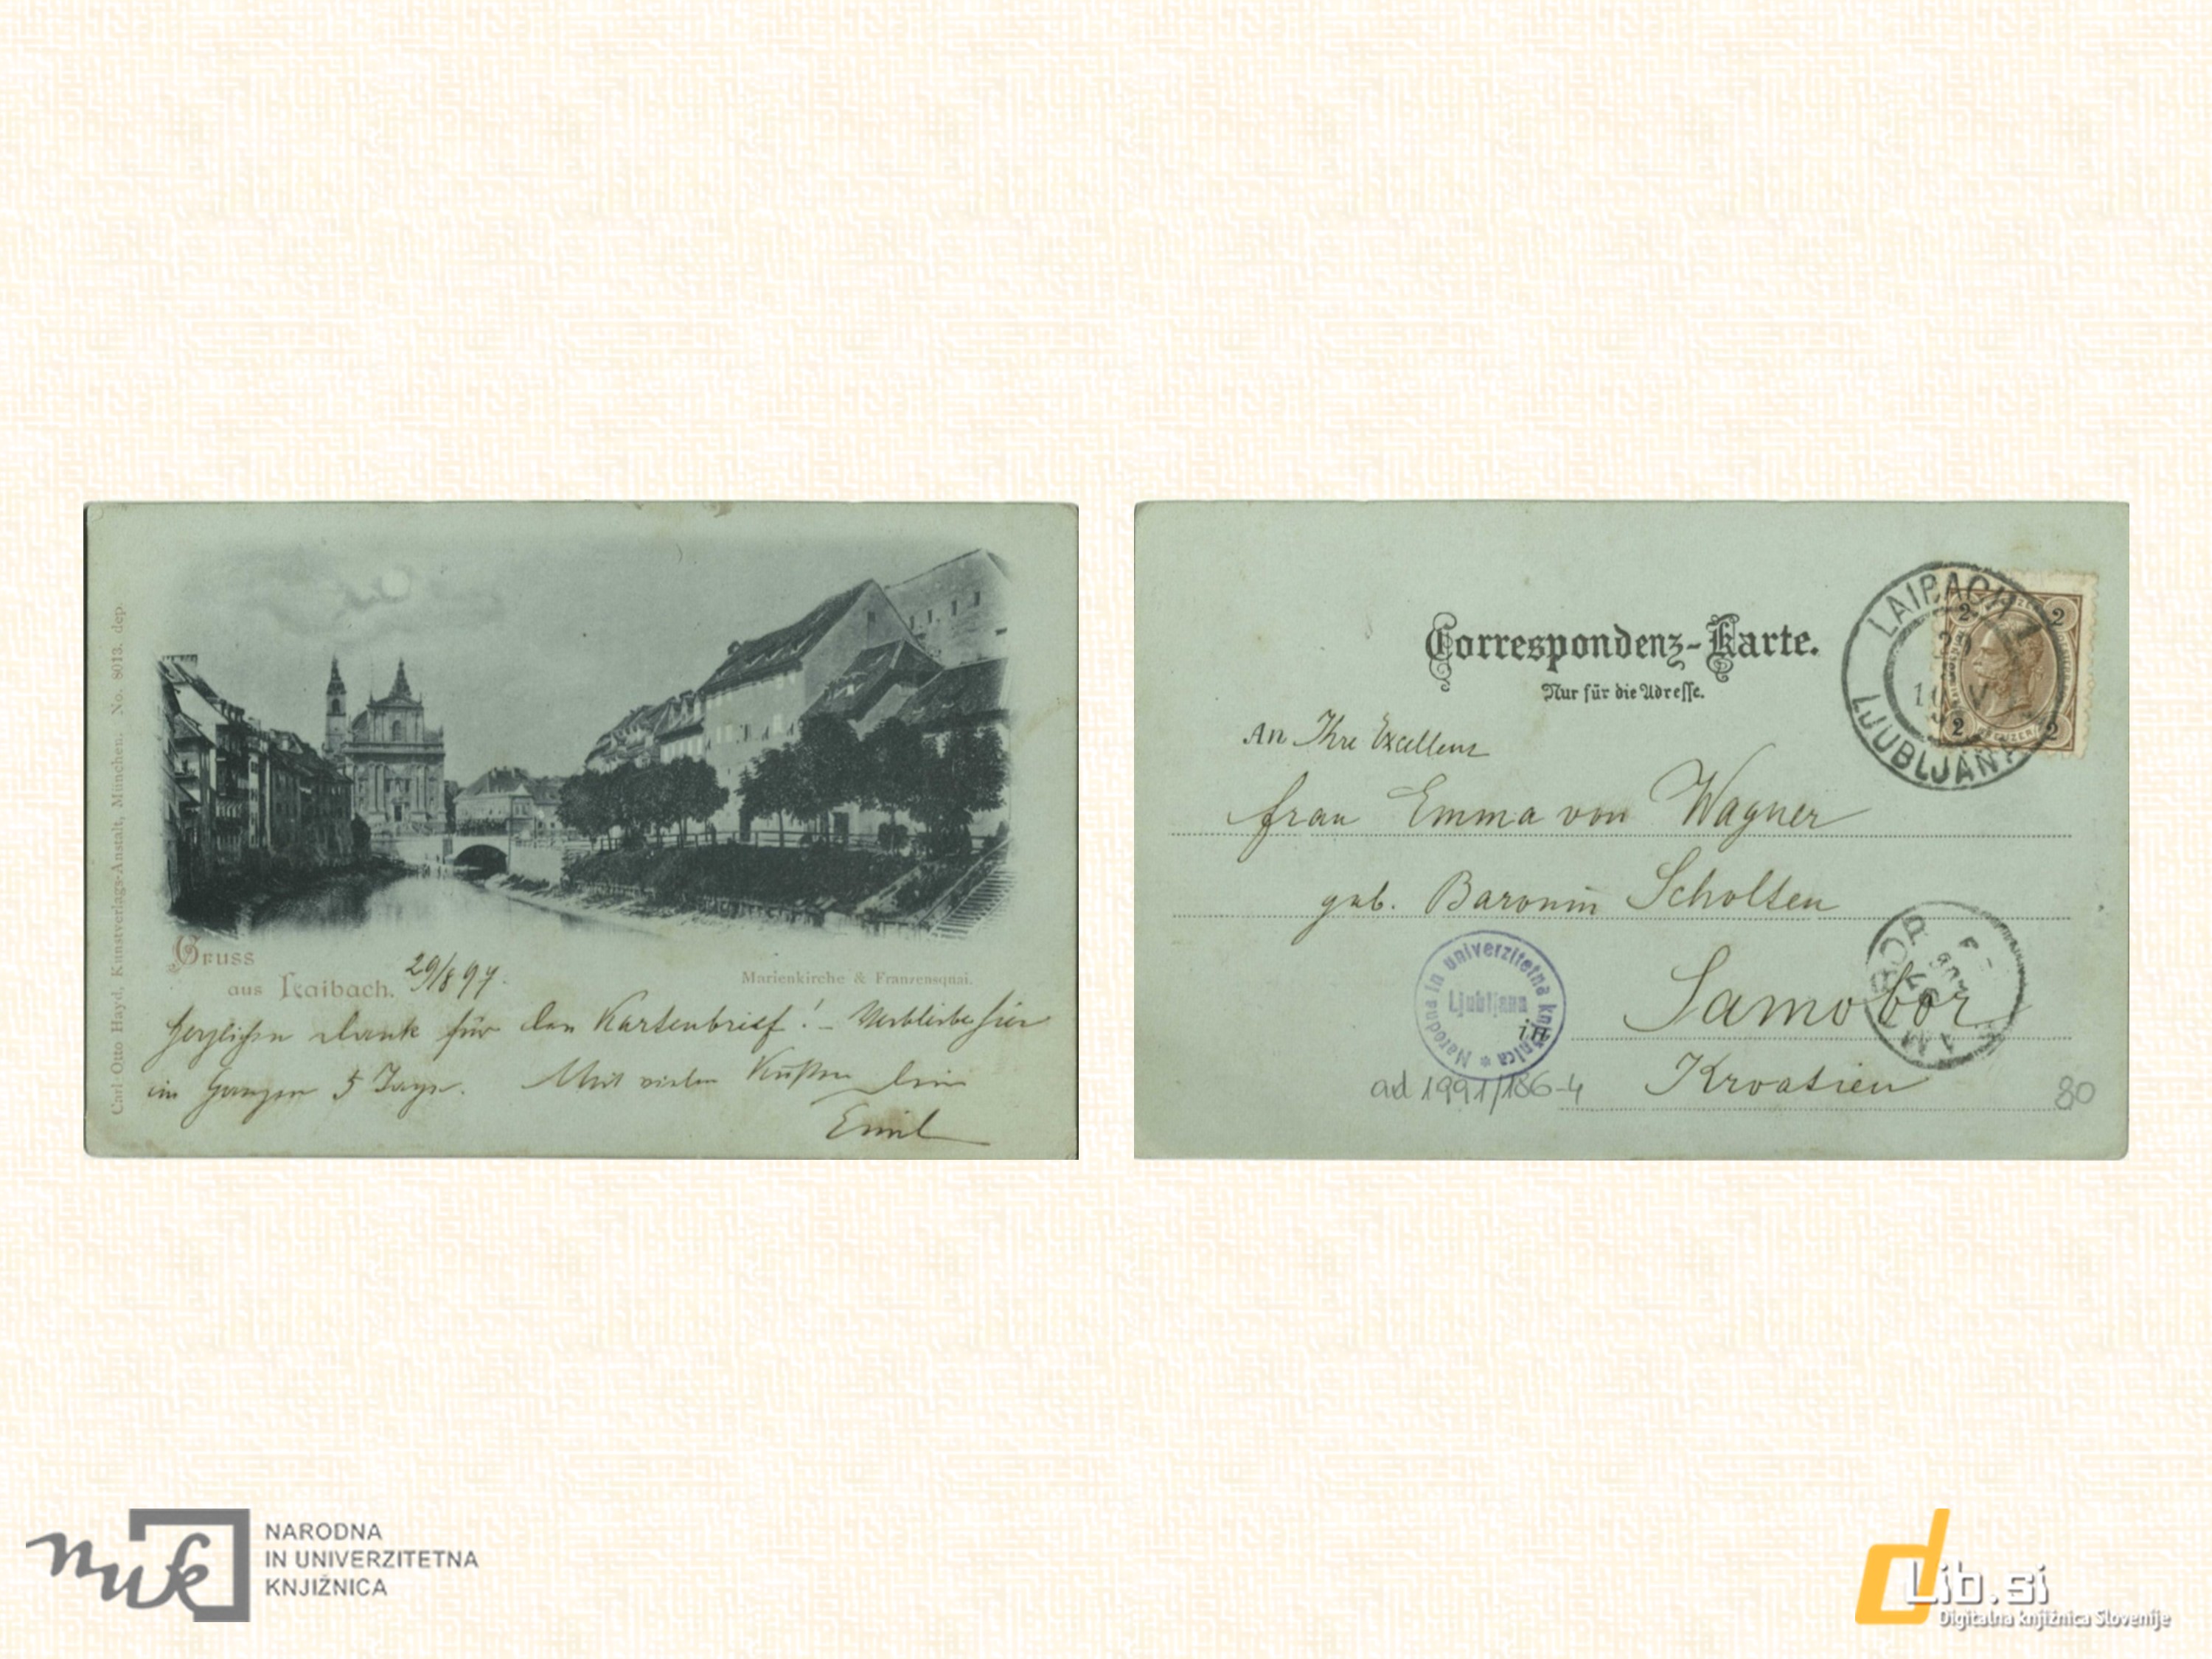 Carl Otto Hayd, Kunstverlags-Anstalt, München. No. 8013. dep.
Gruss
aus Laibach.
29/8 97.
Marienkirche & Franzensquai.
Herzlichen Dank für den Kartenbrief! – Verbleibe hier
im Ganzen 5 Tage. Mit vielen Küssen Dein
Emil
Correspondenz-Karte.
Nur für die Adresse.
LAIBACH
LJUBLJANA
2 2
2 2
An Ihre Excellenz
Frau Emma von Wagner
geb. Baronin Scholten
Narodna in univerzitetna knjižnica
Ljubljana
in
Samobor
Kroatien
ad 1991/186-4
80
nuk
NARODNA
IN UNIVERZITETNA
KNJIŽNICA
dLib.si
Digitalna knjižnica Slovenije